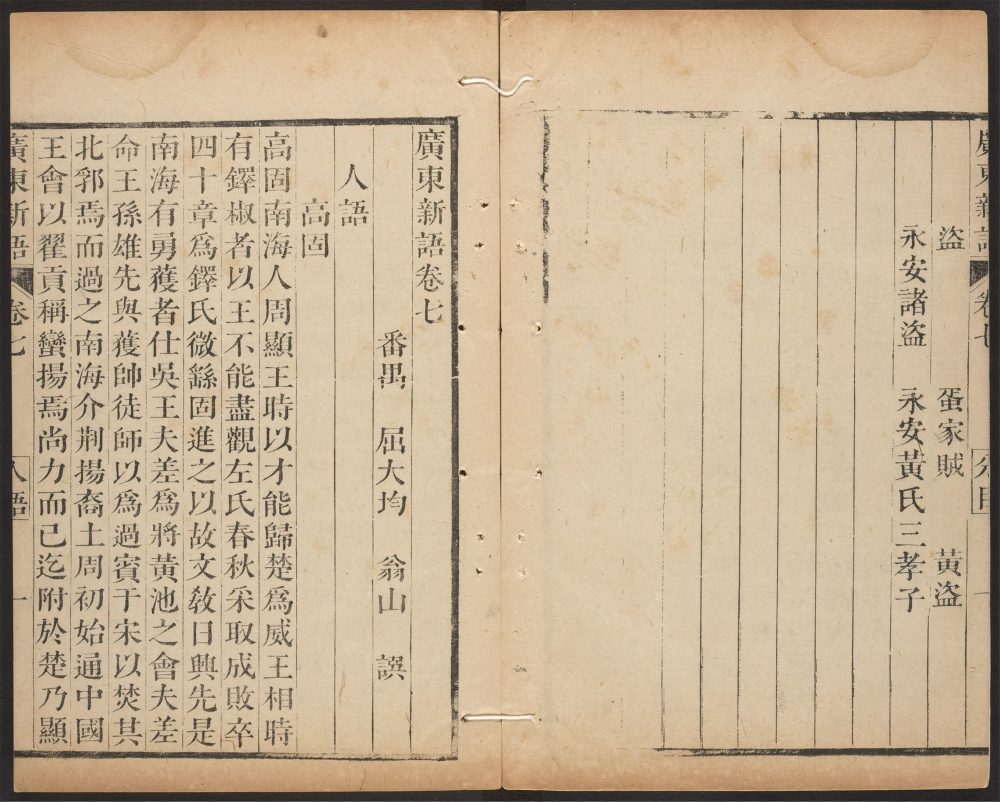 廣東新語 卷七 分目
盜 蛋家賊 黃盜
永安諸盜 永安黃氏三孝子
廣東新語卷七
番禺 屈大均 翁山 譔
人語
高固
高固南海人周顯王時以才能歸楚爲威王相時
有鐸椒者以王不能盡觀左氏春秋采取成敗卒
四十章爲鐸氏微繇固進之以故文敎日興先是
南海有勇獲者仕吳王夫差爲將黃池之會夫差
命王孫雄先與獲帥徒師以爲過賓于宋以焚其
北郛焉而過之南海介荆揚裔土周初始通中國
王會以翟貢稱蠻揚焉尚力而已迄附於楚乃顯
廣東新語 卷七 人語 一